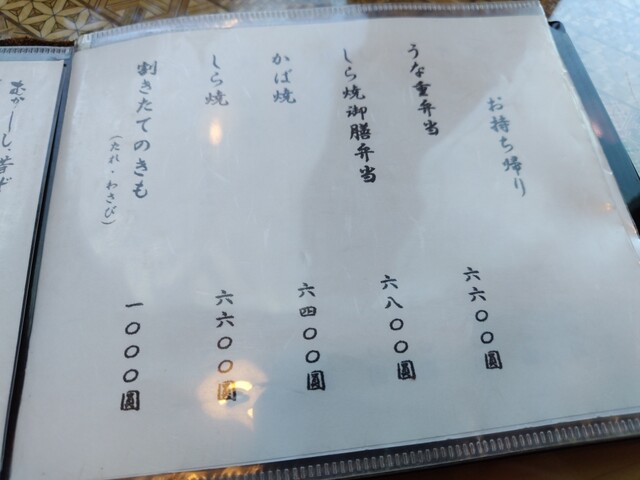 お持ち帰り
うな重弁当
六六〇〇圓
しら焼御膳弁当
六八〇〇圓
かば焼
六四〇〇圓
しら焼
六六〇〇圓
割きたてのきも
(たれ・わさび)
一〇〇〇圓
むかしし、昔